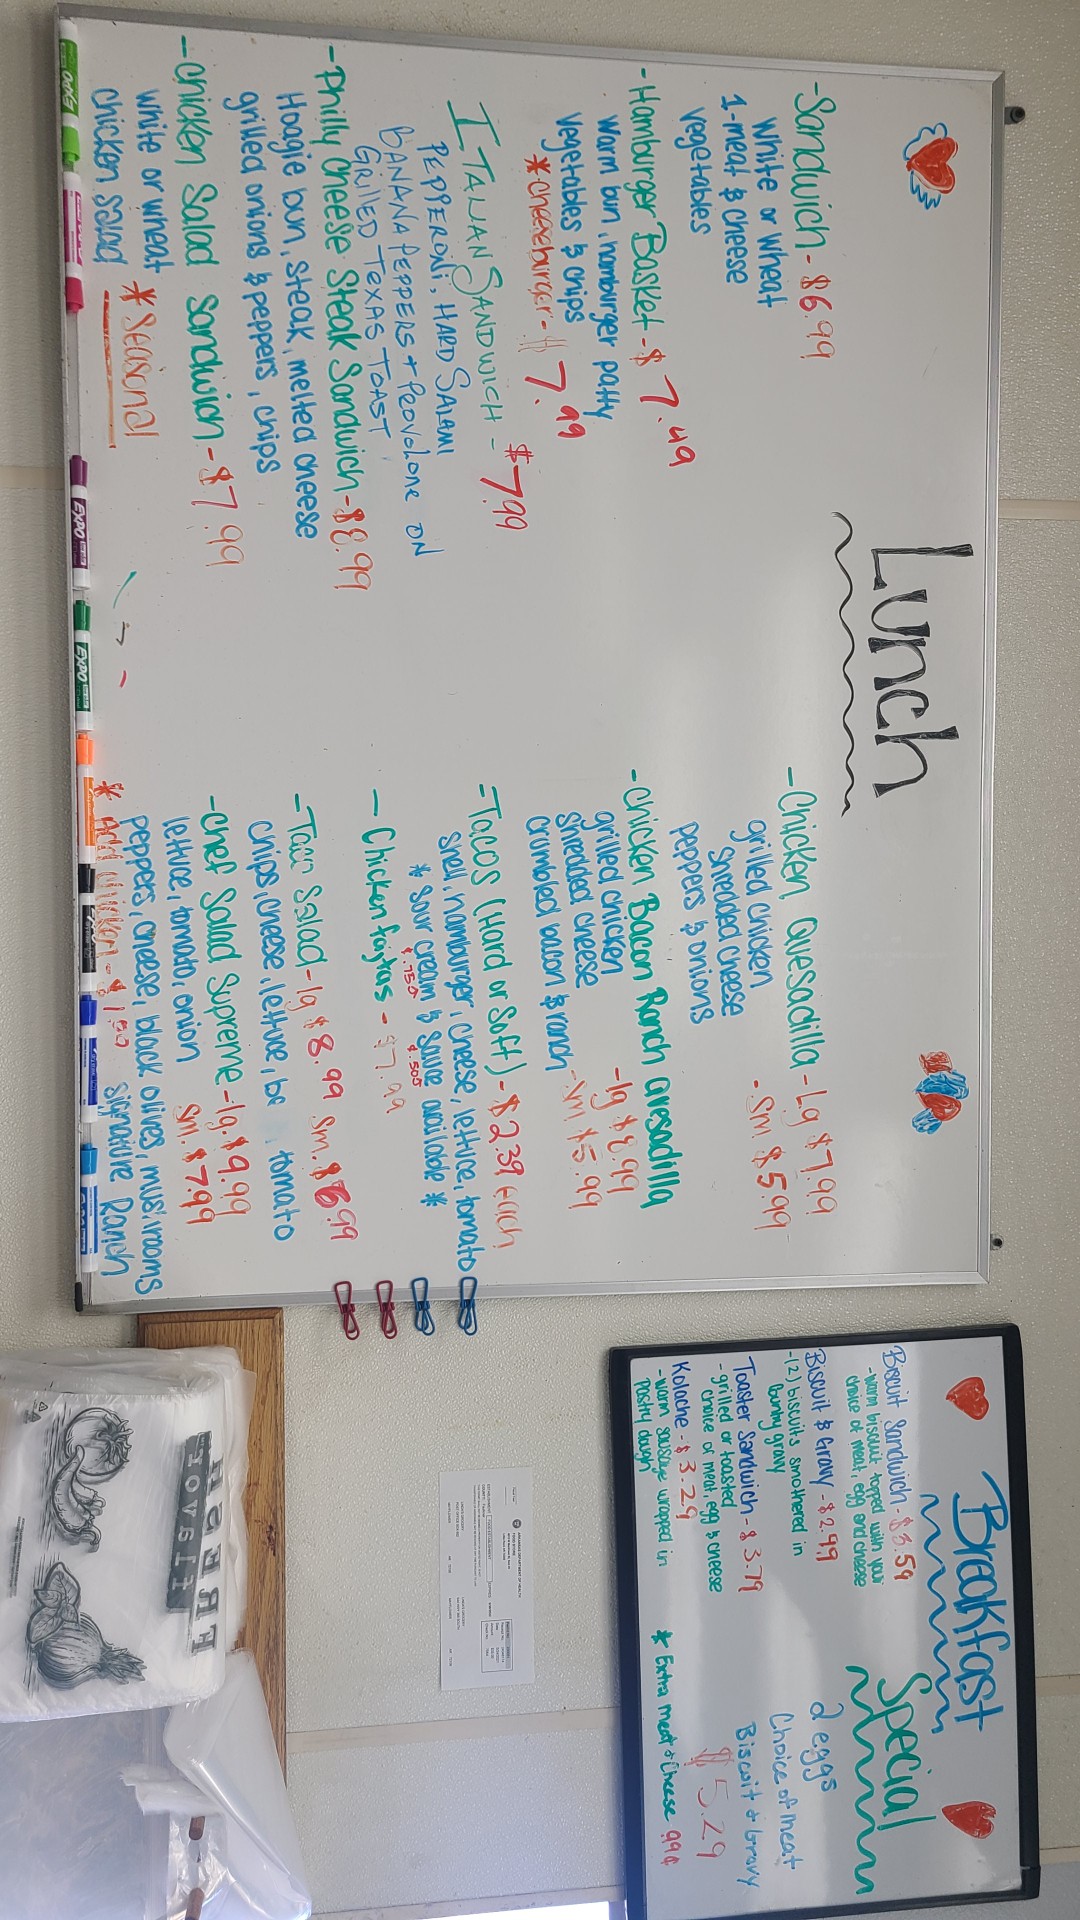 Lunch
-Sandwich - $6.99
White or wheat
1-meat & cheese
vegetables
-Hamburger Basket - $7.49
warm bun, hamburger patty
vegetables & chips
*cheeseburger - $7.99
ITALIAN SANDWICH - $7.99
PEPPERONI, HARD SALAMI
BANANA PEPPERS + PROVOLONE ON
GRILLED TEXAS TOAST
-Philly Cheese Steak Sandwich - $8.99
Hoagie bun, steak, melted cheese
grilled onions & peppers, chips
-Chicken Salad Sandwich - $7.99
white or wheat
chicken salad
*Seasonal
-Chicken Quesadilla - Lg $7.99
- Sm $5.99
grilled chicken
shredded cheese
peppers & onions
-Chicken Bacon Ranch Quesadilla
-lg $8.99
-sm $5.99
grilled chicken
shredded cheese
crumbled bacon & ranch
-Tacos (Hard or Soft) - $2.39 each
shell, hamburger, cheese, lettuce, tomato
* sour cream & sauce available *
$.75¢ $.50¢
- Chicken fajitas - $7.99
-Taco Salad - lg $8.99 sm. $6.99
chips, cheese, lettuce, tomato
-Chef Salad Supreme - lg. $9.99
sm. $7.99
lettuce, tomato, onion
peppers, cheese, black olives, mushrooms
signature Ranch
* Add chicken - $1.50
EXPO
EXPO
Breakfast
Special
Biscuit Sandwich - $3.59
-warm biscuit topped with your
choice of meat, egg and cheese
Biscuit & Gravy - $2.99
-(2) biscuits smothered in
county gravy
Toaster Sandwich - $3.79
-grilled or toasted
choice of meat, egg & cheese
Kolache - $3.29
-warm sausage wrapped in
pastry dough
2 eggs
Choice of meat
Biscuit & Gravy
$5.29
* Extra meat & Cheese .99¢
ARKANSAS DEPARTMENT OF HEALTH
FRESH